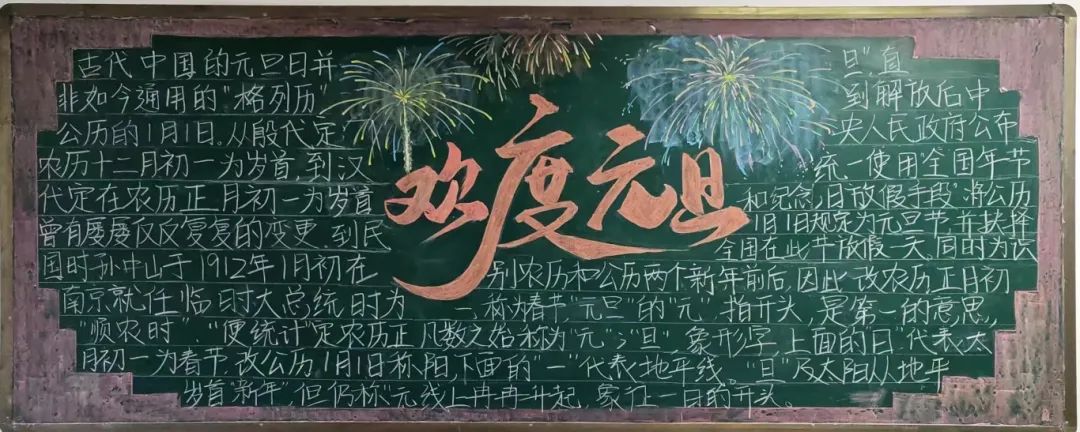 欢度元旦
古代中国的元旦日并
非如今通用的"格列历"
公历的1月1日。从殷代定
农历十二月初一为岁首,到汉
代定在农历正月初一为岁首
曾有屡屡反反复复的变更,到民
国时孙中山于1912年1月初在
南京就任临时大总统时为
"顺农时","便统计"定农历正
月初一为春节,改公历1月1日称
岁首"新年",但仍称"元
旦",直
到解放后中
央人民政府公布
统一使用"全国年节
和纪念日放假手段"将公历
1月1日规定为元旦节,并抉择
全国在此节放假一天,同时为识
别农历和公历两个新年前后,因此改农历正月初
一,称为春节."元旦"的"元",指开头,是第一的意思,
凡数之始称为"元";"旦"象形字,上面的"日"代表太
阳,下面的"一"代表地平线。"旦"及太阳从地平
线上冉冉升起,象征一日的开头。